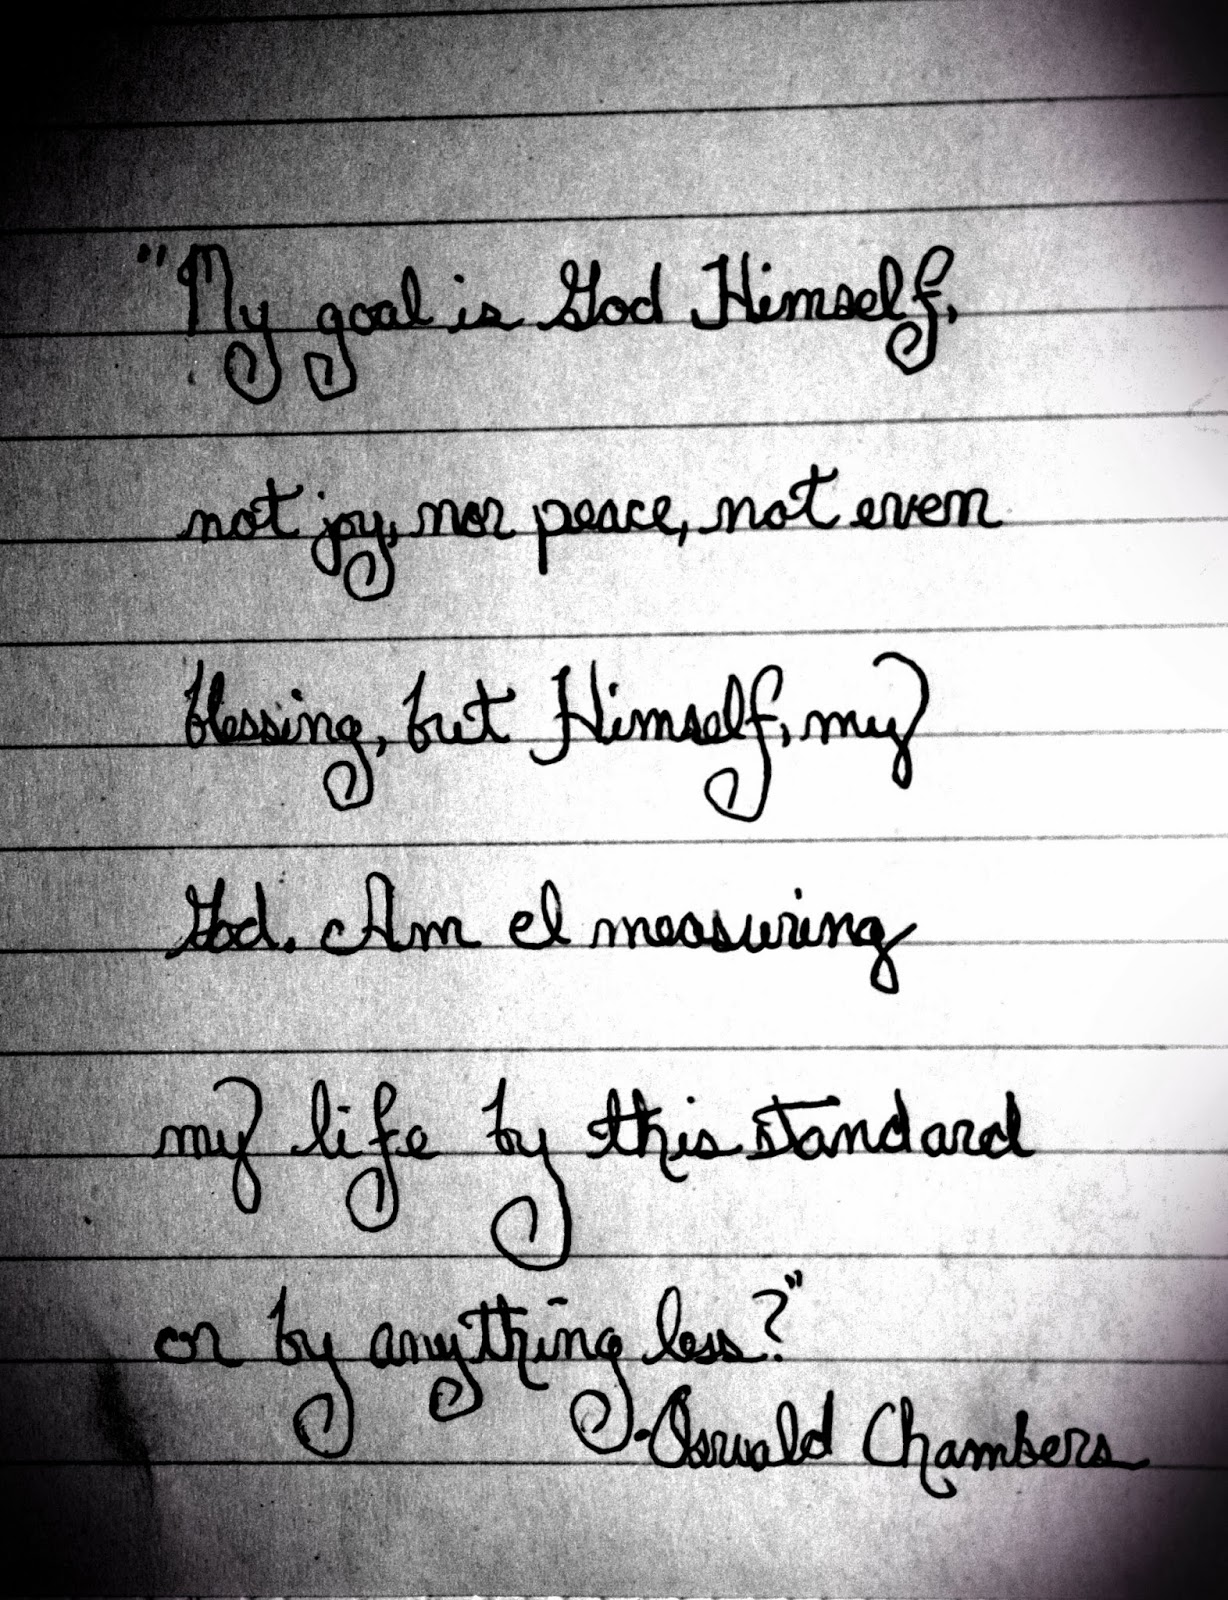 "My goal is God Himself,
not joy, nor peace, not even
blessing, but Himself, my
God. Am I measuring
my life by this standard
or by anything less?"
-Oswald Chambers